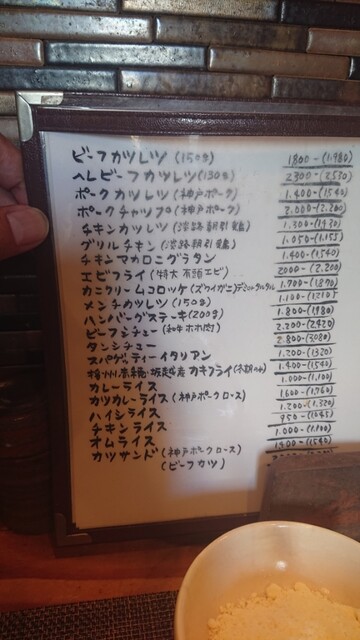 ビーフカツレツ(150g) 1.800-(1.980)
ヘレビーフカツレツ(130g) 2300-(2530)
ポークカツレツ(神戸ポーク) 1.400-(1540)
ポークチャップ(神戸ポーク) 2.000-(2.200)
チキンカツレツ(淡路朝引鶏) 1.300-(1430)
グリルチキン(淡路朝引鶏) 1.050-(1.155)
チキンマカロニグラタン 1.400-(1.540)
エビフライ(特大有頭エビ) 2000-(2.200)
カニクリームコロッケ(ズワイガニ) 1.700-(1.870)
メンチカツレツ(150g) 1.100-(1210)
ハンバーグステーキ(200g) 1.800-(1980)
ビーフシチュー(和牛ホホ肉) 2.200-(2420)
タンシチュー 2.800-(3080)
スパゲッティーイタリアン 1.200-(1320)
カキフライ 1.400-(1540)
カレーライス 1.000-(1.100)
カツカレーライス(神戸ポークロース) 1.600-(1.760)
ハイシライス 1.200-(1.320)
チキンライス 950-(1045)
オムライス 1.000-(1.100)
カツサンド(神戸ポークロース) 1400-(1540)
(ビーフカツ)